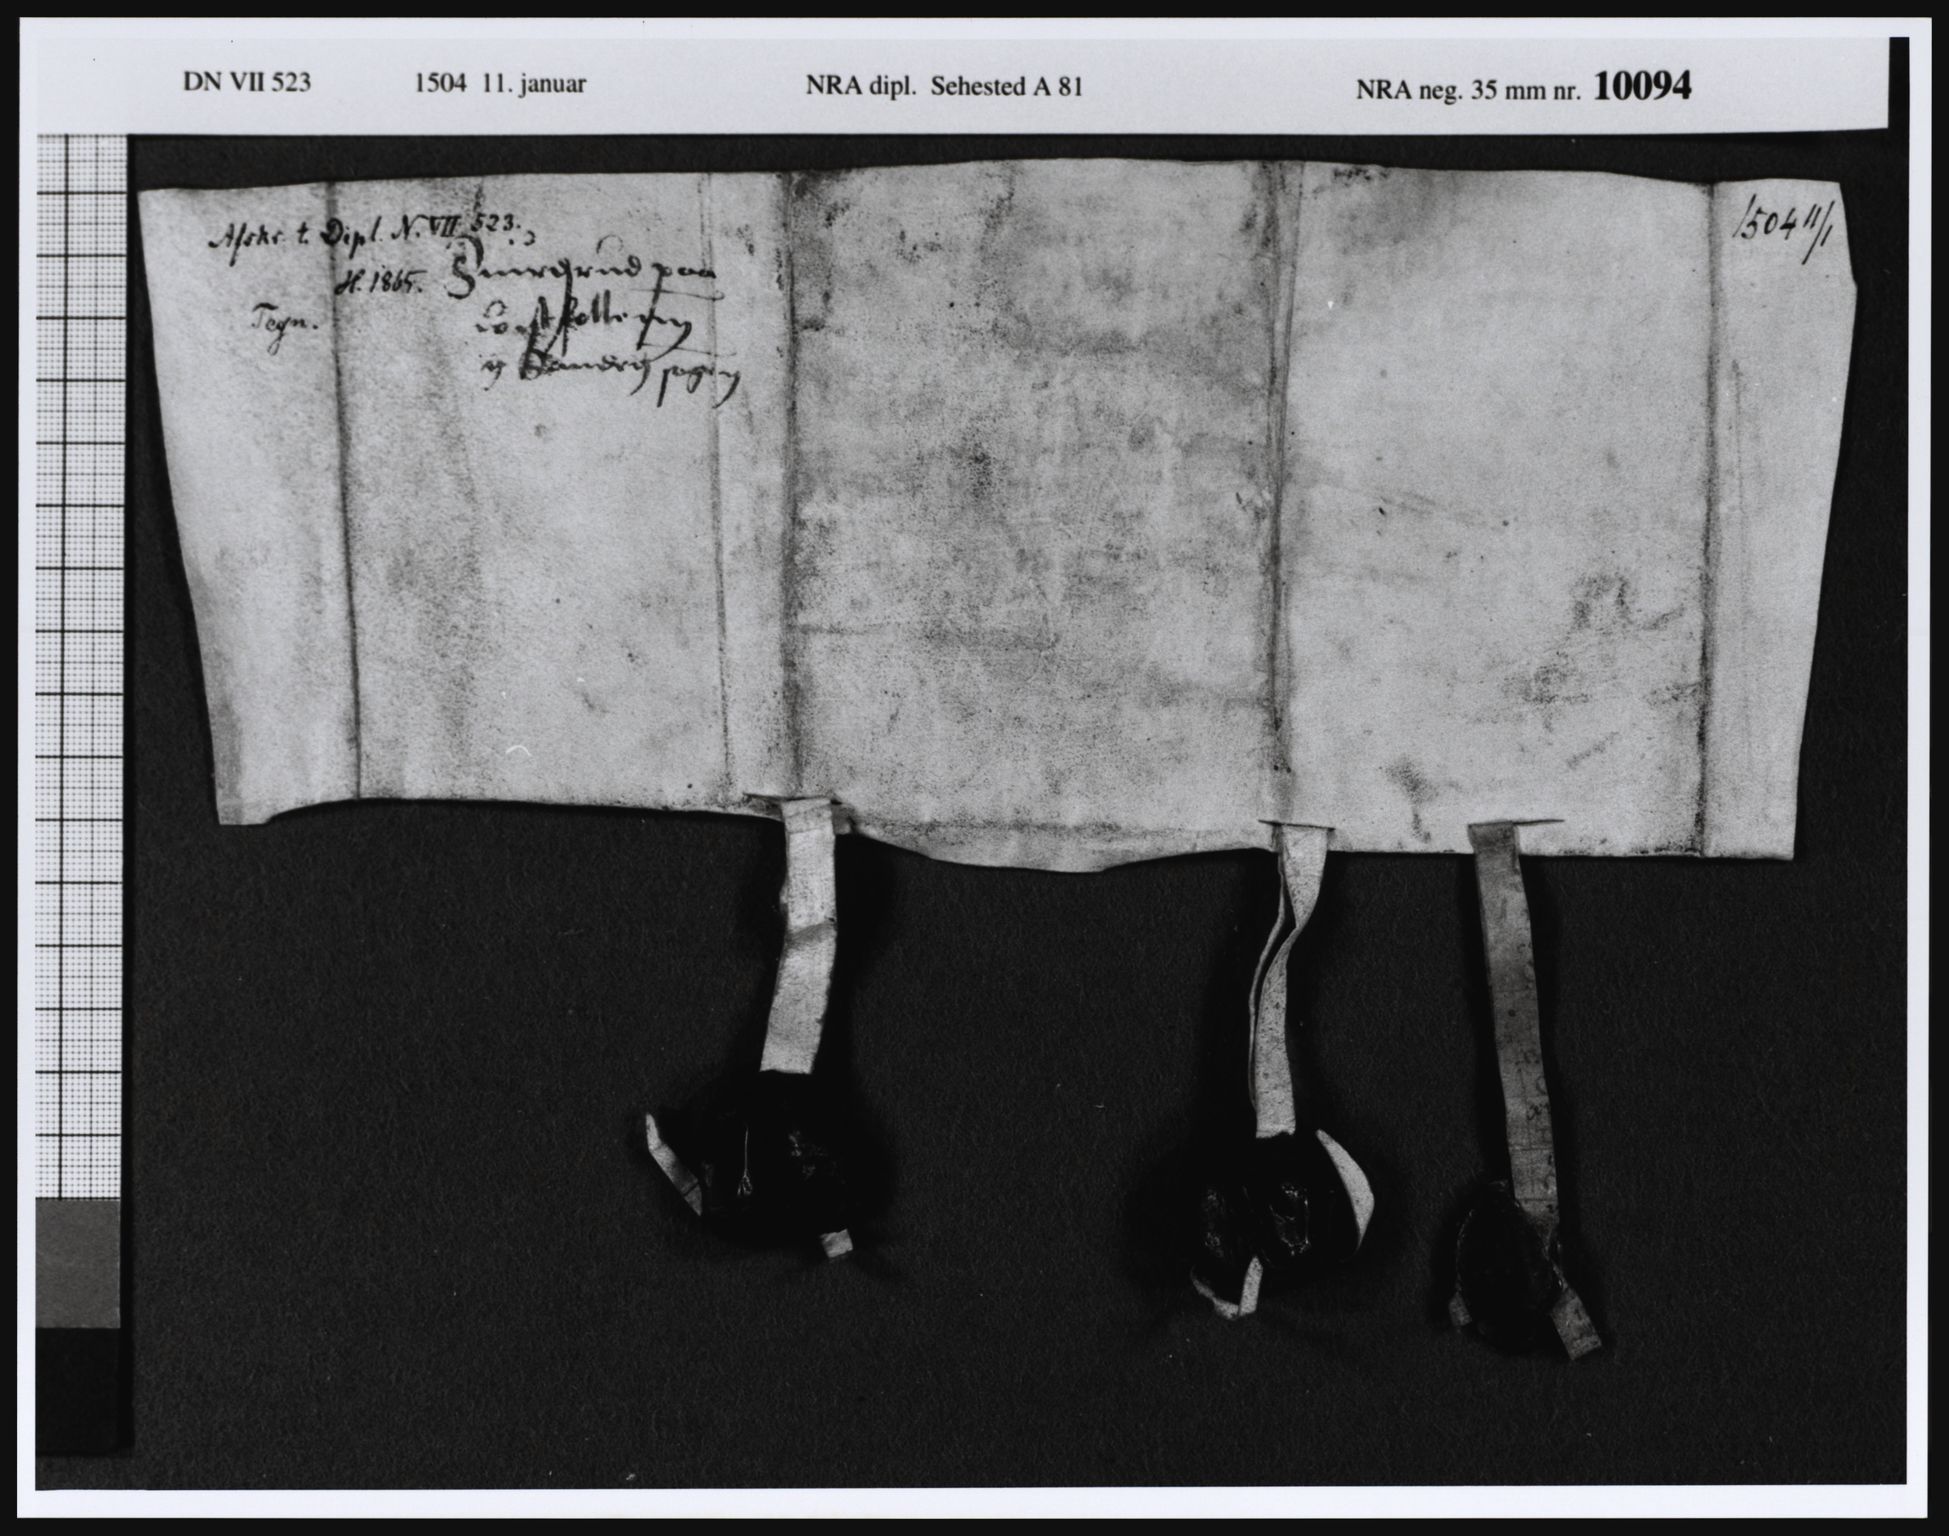 DN VII 523 1504 11. januar NRA dipl. Sehested A 81 NRA neg. 35 mm nr. 10094
Afskr. t. Dipl. N. VII. 523.
H. 1865.
Tegn.
1504 11/1
paa
y Sandey sogen